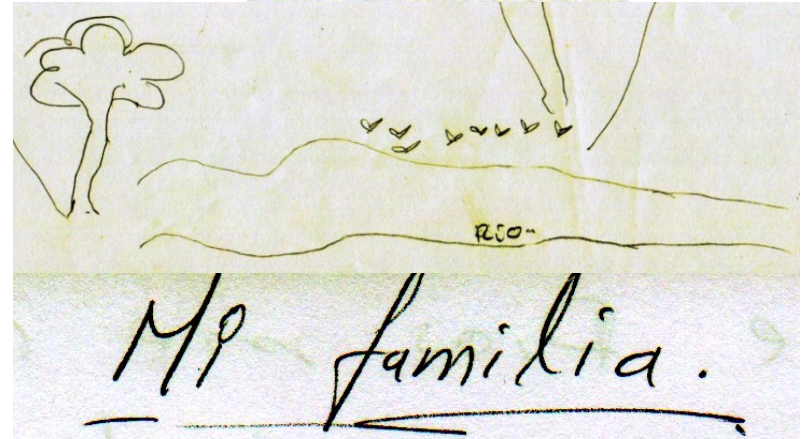 RIO
Mi familia.